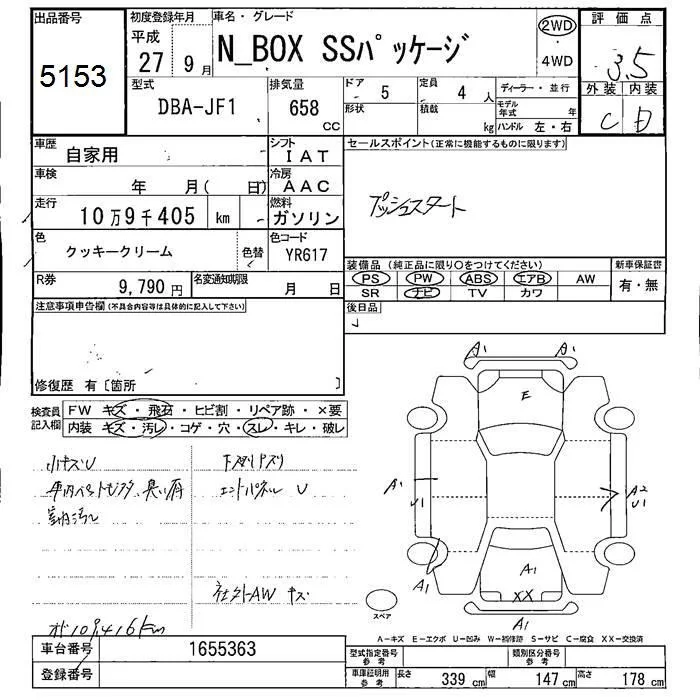 出品番号
5153
初度登録年月
平成
27 9月
車名・グレード
N_BOX SSパッケージ
2WD
4WD
評価点
3.5
外装 内装
C B
型式
DBA-JF1
排気量
658 CC
ドア 5
形状
定員 4 人
積載 kg
ディーラー・並行
モデル年式 年
ハンドル 左・右
車歴
自家用
シフト
IAT
車検
年 月( 日)
冷房
AAC
走行
10万9千405 km
燃料
ガソリン
色
クッキークリーム
色替
色コード
YR617
R券
9,790 円
名変通知期限
月 日
セールスポイント(正常に機能するものに限ります)
プッシュスタート
装備品(純正品に限り○をつけてください)
PS PW ABS エアB AW
SR ナビ TV カワ
新車保証書
有・無
後日品
注意事項申告欄(不具合内容等は具体的に記入して下さい)
修復歴 有〔箇所 〕
検査員記入欄
FW キズ・飛石・ヒビ割・リペア跡・×要
内装 キズ・汚レ・コゲ・穴・スレ・キレ・破レ
小キズU
下廻りサビ
エンドパネル U
室内汚レ
社外AW キズ
オド109,416km
A1 A1
E
A1 U1
A2 U1
A1
A1
XX
A1
スペア
A-キズ E-エクボ U-凹み W-補修跡 S-サビ C-腐食 XX-交換済
車台番号
1655363
登録番号
型式指定番号 参考
類別区分番号 参考
車庫証明用 参考
長さ 339 cm 幅 147 cm 高さ 178 cm